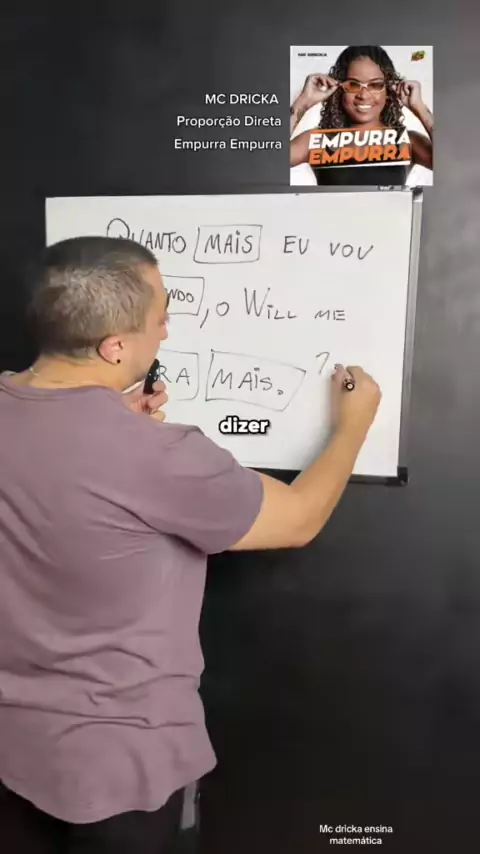 MC DRICKA
MC DRICKA
Proporção Direta
Empurra Empurra
EMPURRA
EMPURRA
QUANTO MAIS EU VOU
NDO, O WILL ME
RA MAIS.
dizer
Mc dricka ensina
matemática